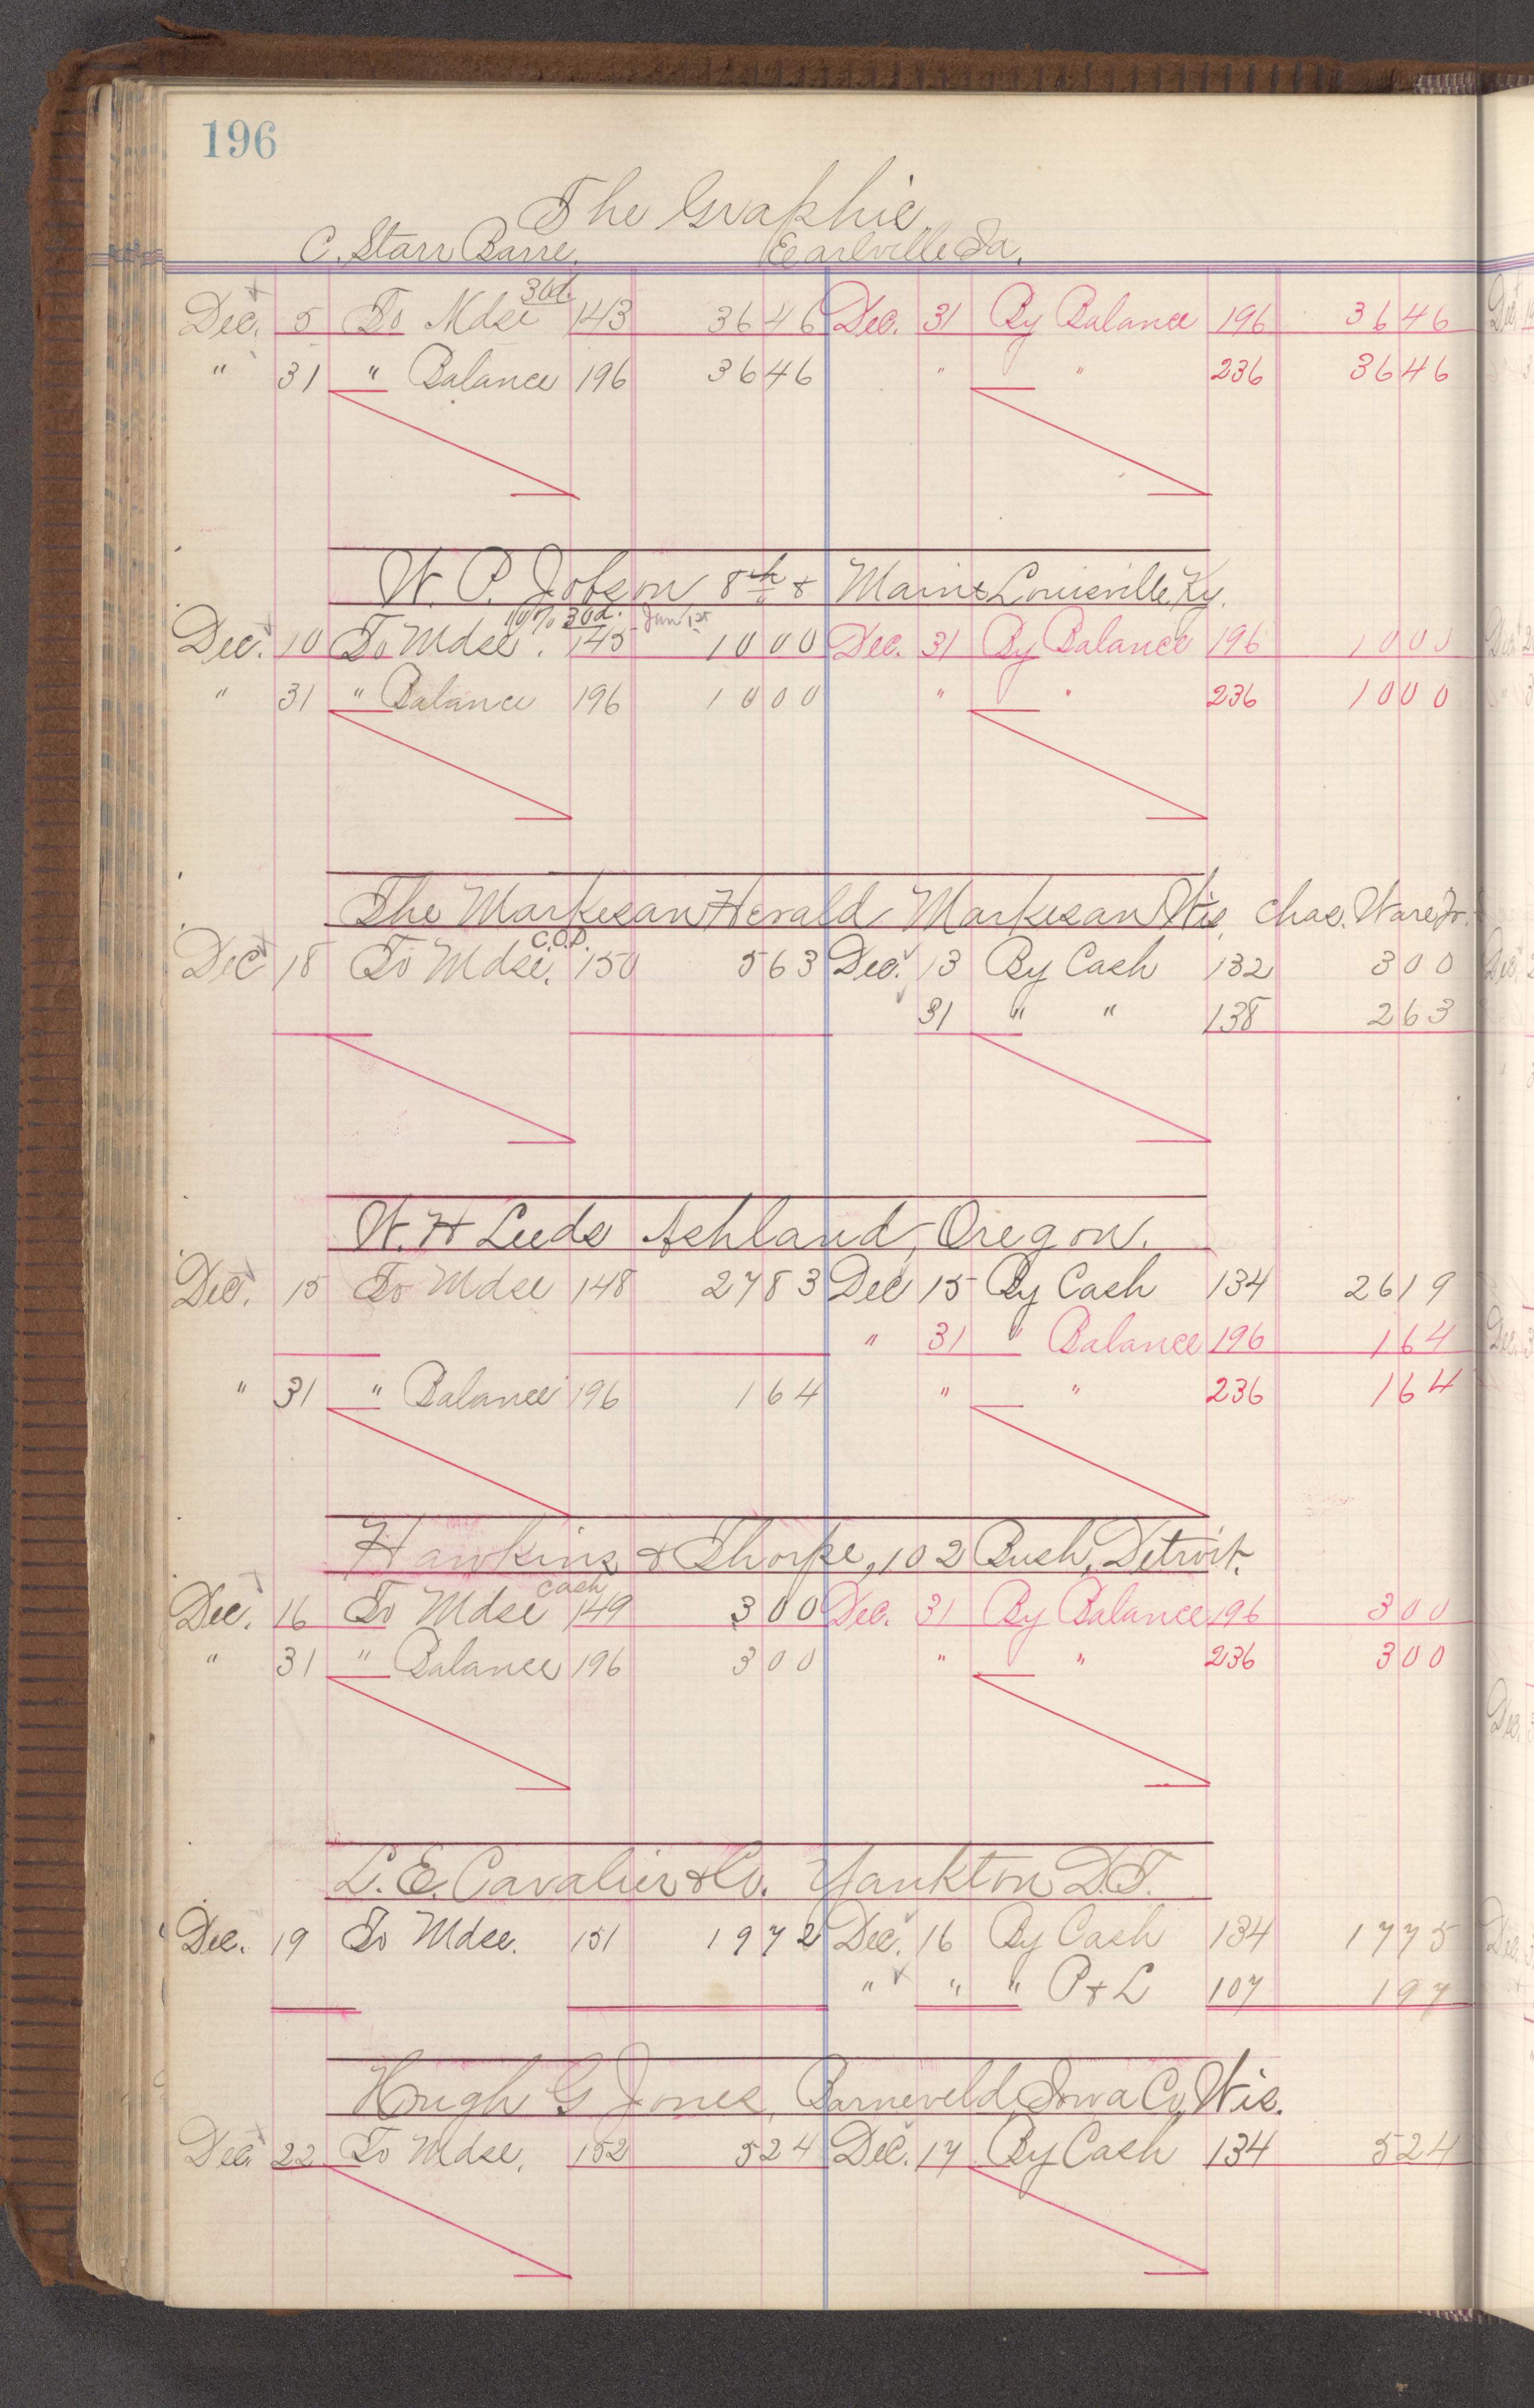 196
The Graphic
C. Starr Barre. Earlville Ia.
30d.
Dec. 5 To Mdse 143 36 46 Dec. 31 By Balance 196 36 46
" 31 " Balance 196 36 46 " " 236 36 46
W. P. Jobson 8th & Main Louisville, Ky.
10% 30d. Jan 1st
Dec. 10 To Mdse. 145 10 00 Dec. 31 By Balance 196 10 00
" 31 " Balance 196 10 00 " " 236 10 00
The Markesan Herald Markesan Wis. Chas. Ware Jr.
C.O.D.
Dec 18 To Mdse. 150 5 63 Dec. 13 By Cash 132 3 00
31 " " 138 2 63
W. H Leeds Ashland, Oregon.
Dec. 15 To Mdse 148 27 83 Dec 15 By Cash 134 26 19
" 31 " Balance 196 1 64
" 31 " Balance 196 1 64 " " 236 1 64
Hawkins & Thorpe, 102 Bush, Detroit.
Cash
Dec. 16 To Mdse 149 3 00 Dec. 31 By Balance 196 3 00
" 31 " Balance 196 3 00 " " 236 3 00
L. E. Cavalier & Co. Yankton D.T.
Dec. 19 To Mdse. 151 19 72 Dec. 16 By Cash 134 17 75
" " " P & L 107 1 97
Hough G Jones, Barneveld, Iowa Co, Wis.
Dec. 22 To Mdse. 152 5 24 Dec. 17 By Cash 134 5 24